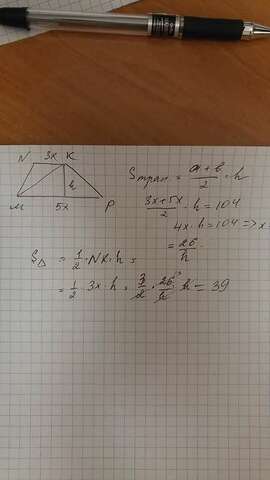 N 3x K
h
M 5x P
Sтрап = \frac{a+b}{2} · h
\frac{3x+5x}{2} · h = 104
4x·h = 104 => x
= \frac{26}{h}
S△ = \frac{1}{2} · NK · h =
= \frac{1}{2} · 3x · h = \frac{3}{2} · \frac{26}{h} · h = 39